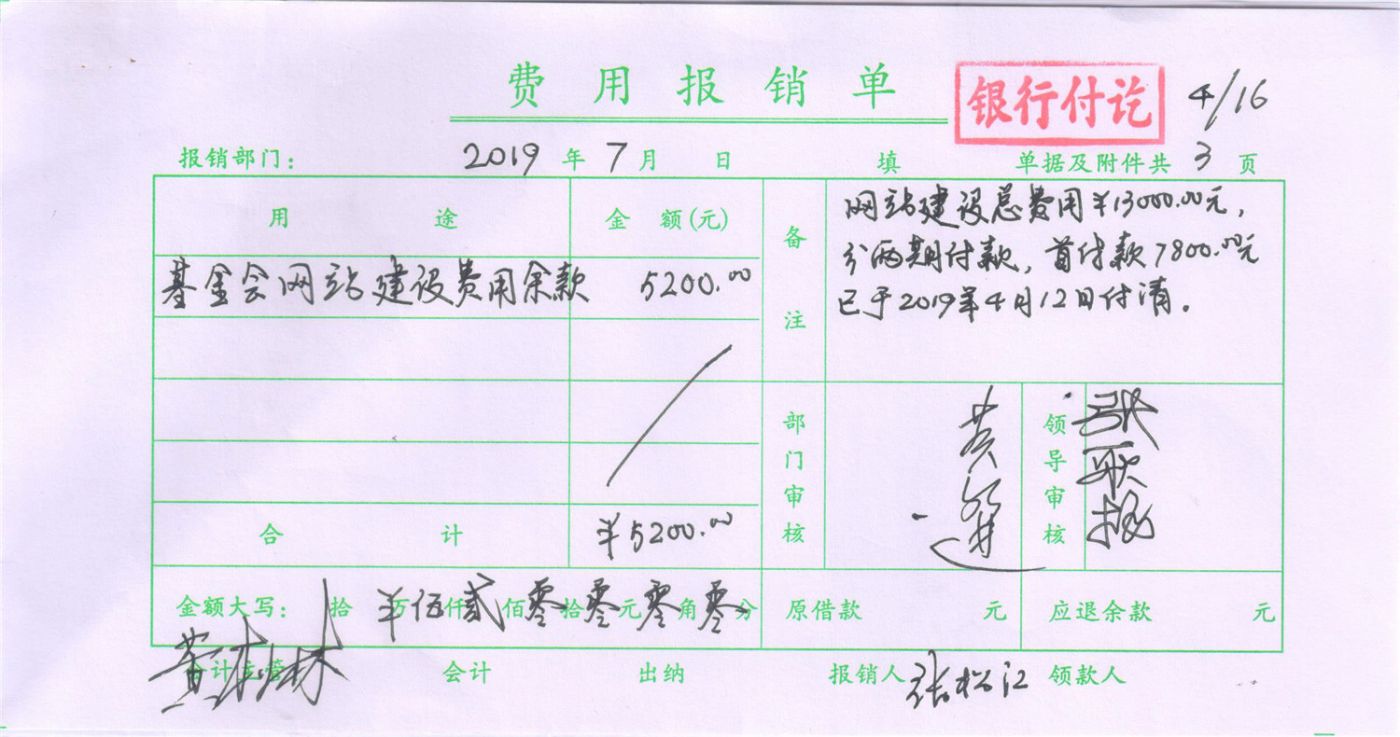 费用报销单
银行付讫
4/16
报销部门: 2019年7月 日 填 单据及附件共3页
用途 金额(元)
基金会网站建设费用余款 5200.00
合计 ¥5200.00
备注
网站建设总费用¥13000.00元,
分两期付款,首付款7800.00元
已于2019年4月12日付清。
部门审核
领导审核
金额大写: 拾 ¥万伍仟贰佰零拾零元零角零分 原借款 元 应退余款 元
会计主管 会计 出纳 报销人 张松江 领款人